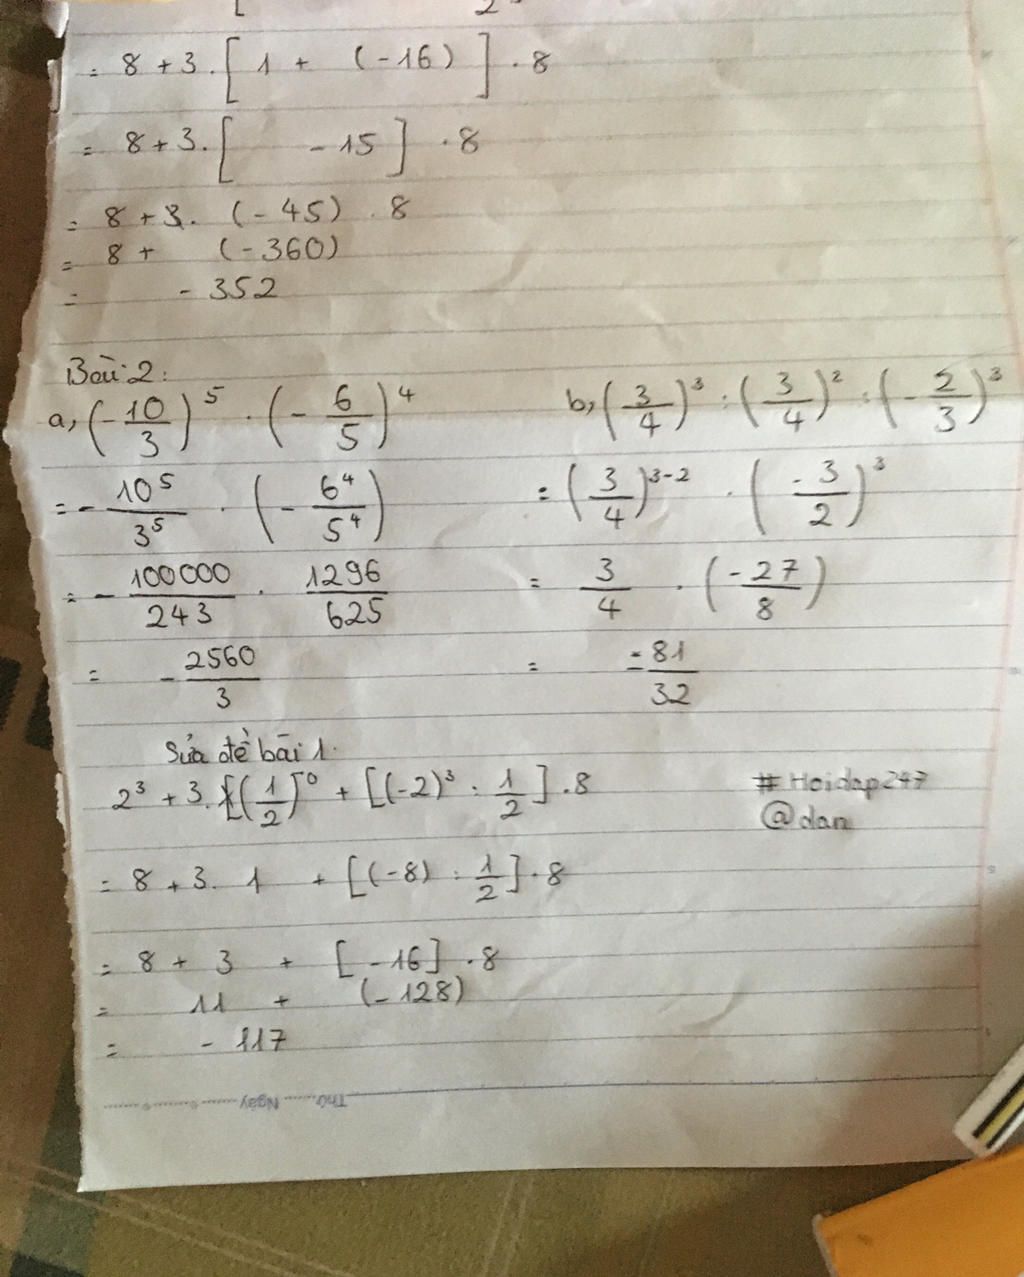 = 8 + 3 . [ 1 + (-16) ] . 8
= 8 + 3 . [ -15 ] . 8
= 8 + 3 . (-45) . 8
= 8 + (-360)
= - 352
Bài 2:
a, (- 10/3)^5 . (- 6/5)^4
= - 10^5/3^5 . (- 6^4/5^4)
= - 100000/243 . 1296/625
= - 2560/3
b, (3/4)^3 : (3/4)^2 : (- 2/3)^3
= (3/4)^3-2 . (-3/2)^3
= 3/4 . (-27/8)
= -81/32
Sửa đề bài 1.
2^3 + 3 . [(1/2)^0 + [(-2)^3 : 1/2] . 8
= 8 + 3 . 1 + [(-8) : 1/2] . 8
= 8 + 3 + [-16] . 8
= 11 + (-128)
= - 117
# Hoidap247
@dan
Thứ ........ Ngày